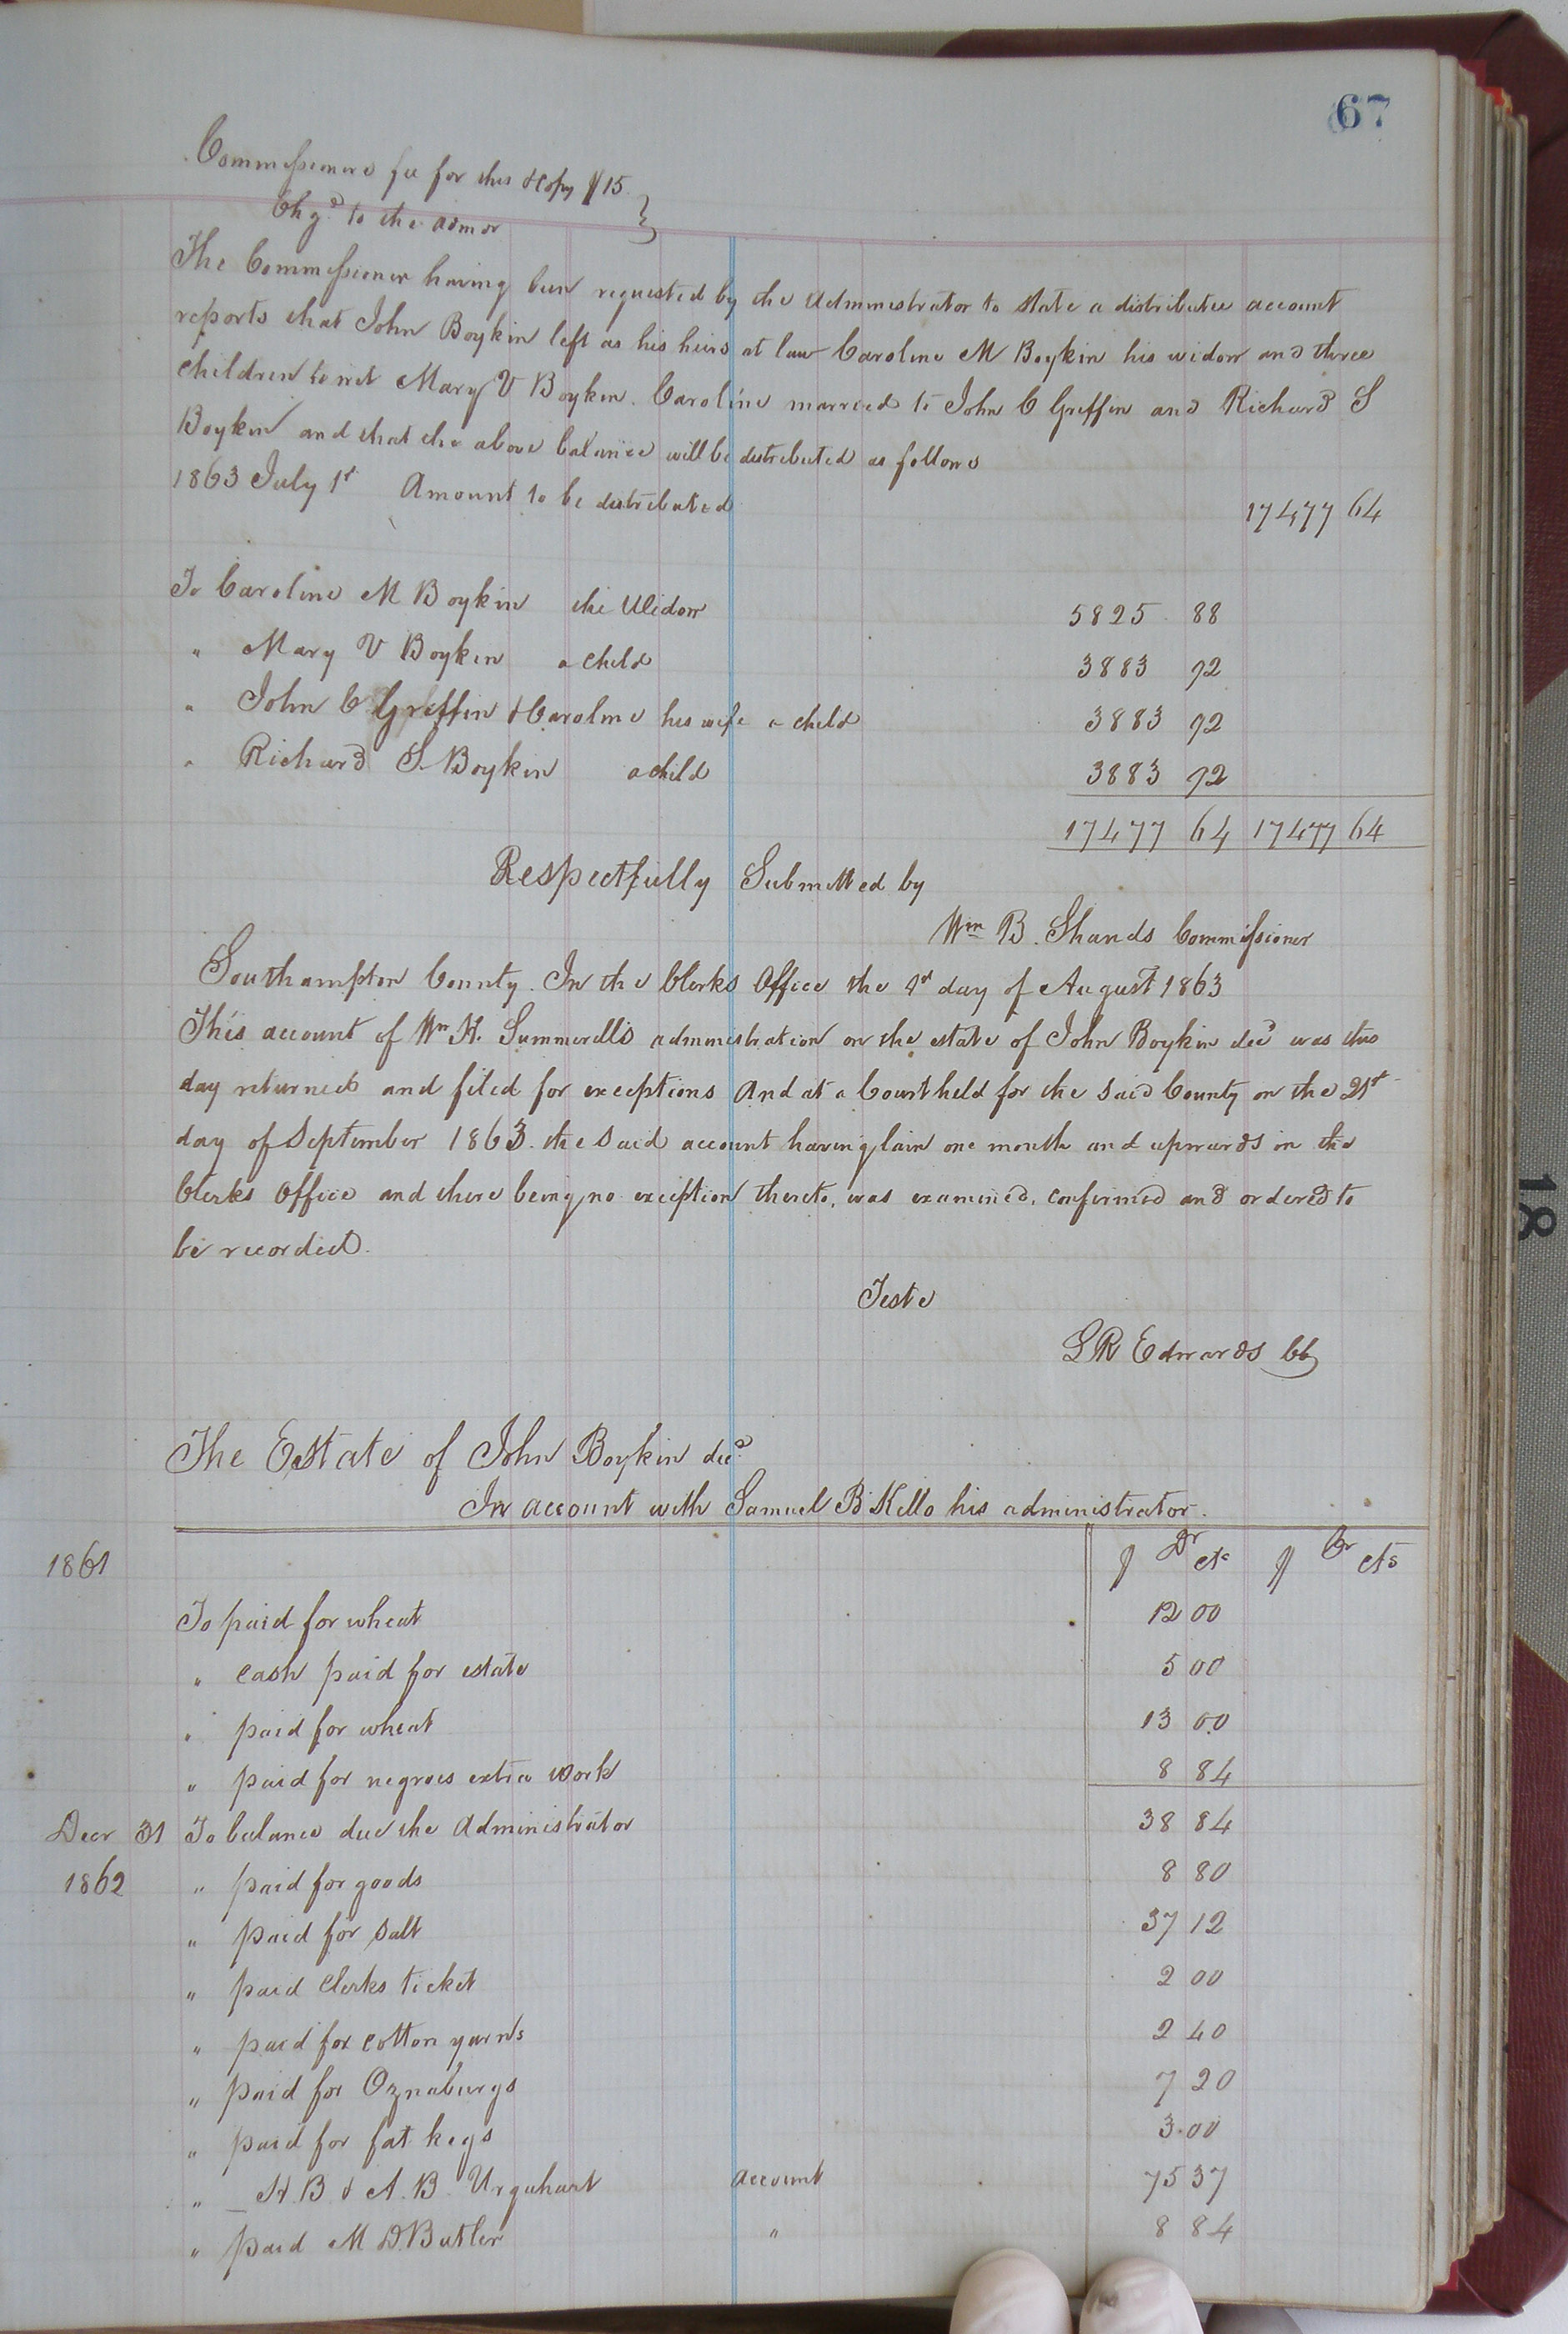 67
Commissioners fee for this & copy $15
Chgd to the admor
The Commissioner having been requested by the Administrator to state a distributee account
reports that John Boykin left as his heirs at law Caroline M Boykin his widow and three
children to wit Mary V Boykin. Caroline married to John C Griffin and Richard S
Boykin and that the above balance will be distributed as follows
1863 July 1st Amount to be distributed 17477 64
To Caroline M Boykin the Widow 5825 88
" Mary V Boykin a child 3883 92
" John C Griffin & Caroline his wife a child 3883 92
" Richard S. Boykin a child 3883 92
17477 64 17477 64
Respectfully Submitted by
Wm B. Shands Commissioner
Southampton County. In the Clerks Office the 1st day of August 1863
This account of Wm H. Summerells administration on the estate of John Boykin decd was this
day returned and filed for exceptions And at a Court held for the said County on the 21st
day of September 1863. the said account having lain one month and upwards in the
Clerks Office and there being no exception thereto, was examined, confirmed and ordered to
be recorded.
Teste
L R Edwards CC
The Estate of John Boykin decd
In account with Samuel B Kello his administrator.
1861 $ Dr cts $ Cr cts
To paid for wheat 12 00
" cash paid for estate 5 00
" paid for wheat 13 00
" paid for negroes extra work 8 84
Decr 31 To balance due the Administrator 38 84
1862 " paid for goods 8 80
" paid for salt 37 12
" paid Clerks ticket 2 00
" paid for cotton yarns 2 40
" paid for Oznaburgs 7 20
" paid for fat kegs 3.00
" N. B & A. B. Urquhart account 75 37
" paid M D. Butler " 8 84
18